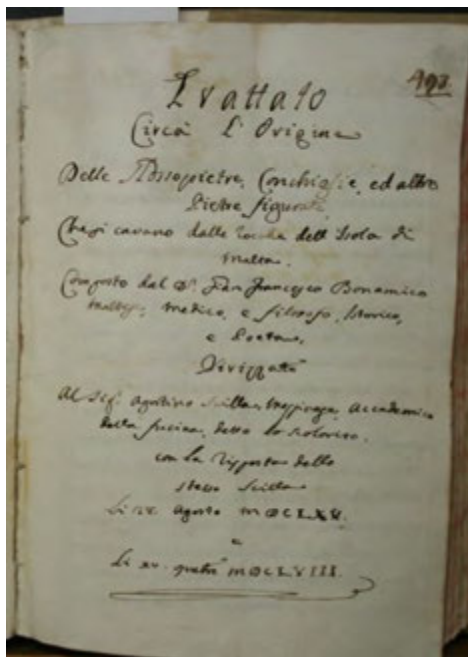 493.
Trattato
Circa L'Origine
Delle Glossopietre, Conchiglie, ed altre
Pietre figurate,
Che si cavano dalle rocche dell'Isola di
Malta.
Composto dal D. Gian Francesco Bonamico
Maltese, Medico, e filosofo, Istorico,
e Poeta,
Dirizzato
Al Sig. Agostino Scilla, Academico
della fucina, detto lo Scolorito.
con la risposta dello
stesso Scilla
Li Agosto MDCLXV.
e
Li xv. MDCLXVIII.